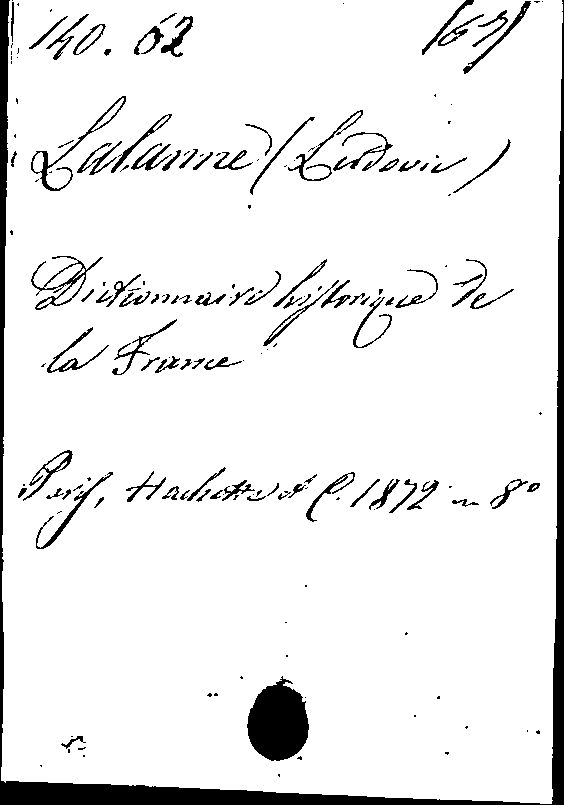 140. 62 (67)
Lalanne (Ludovic)
Dictionnaire historique de
la France
Paris, Hachette et C. 1872 in 8°